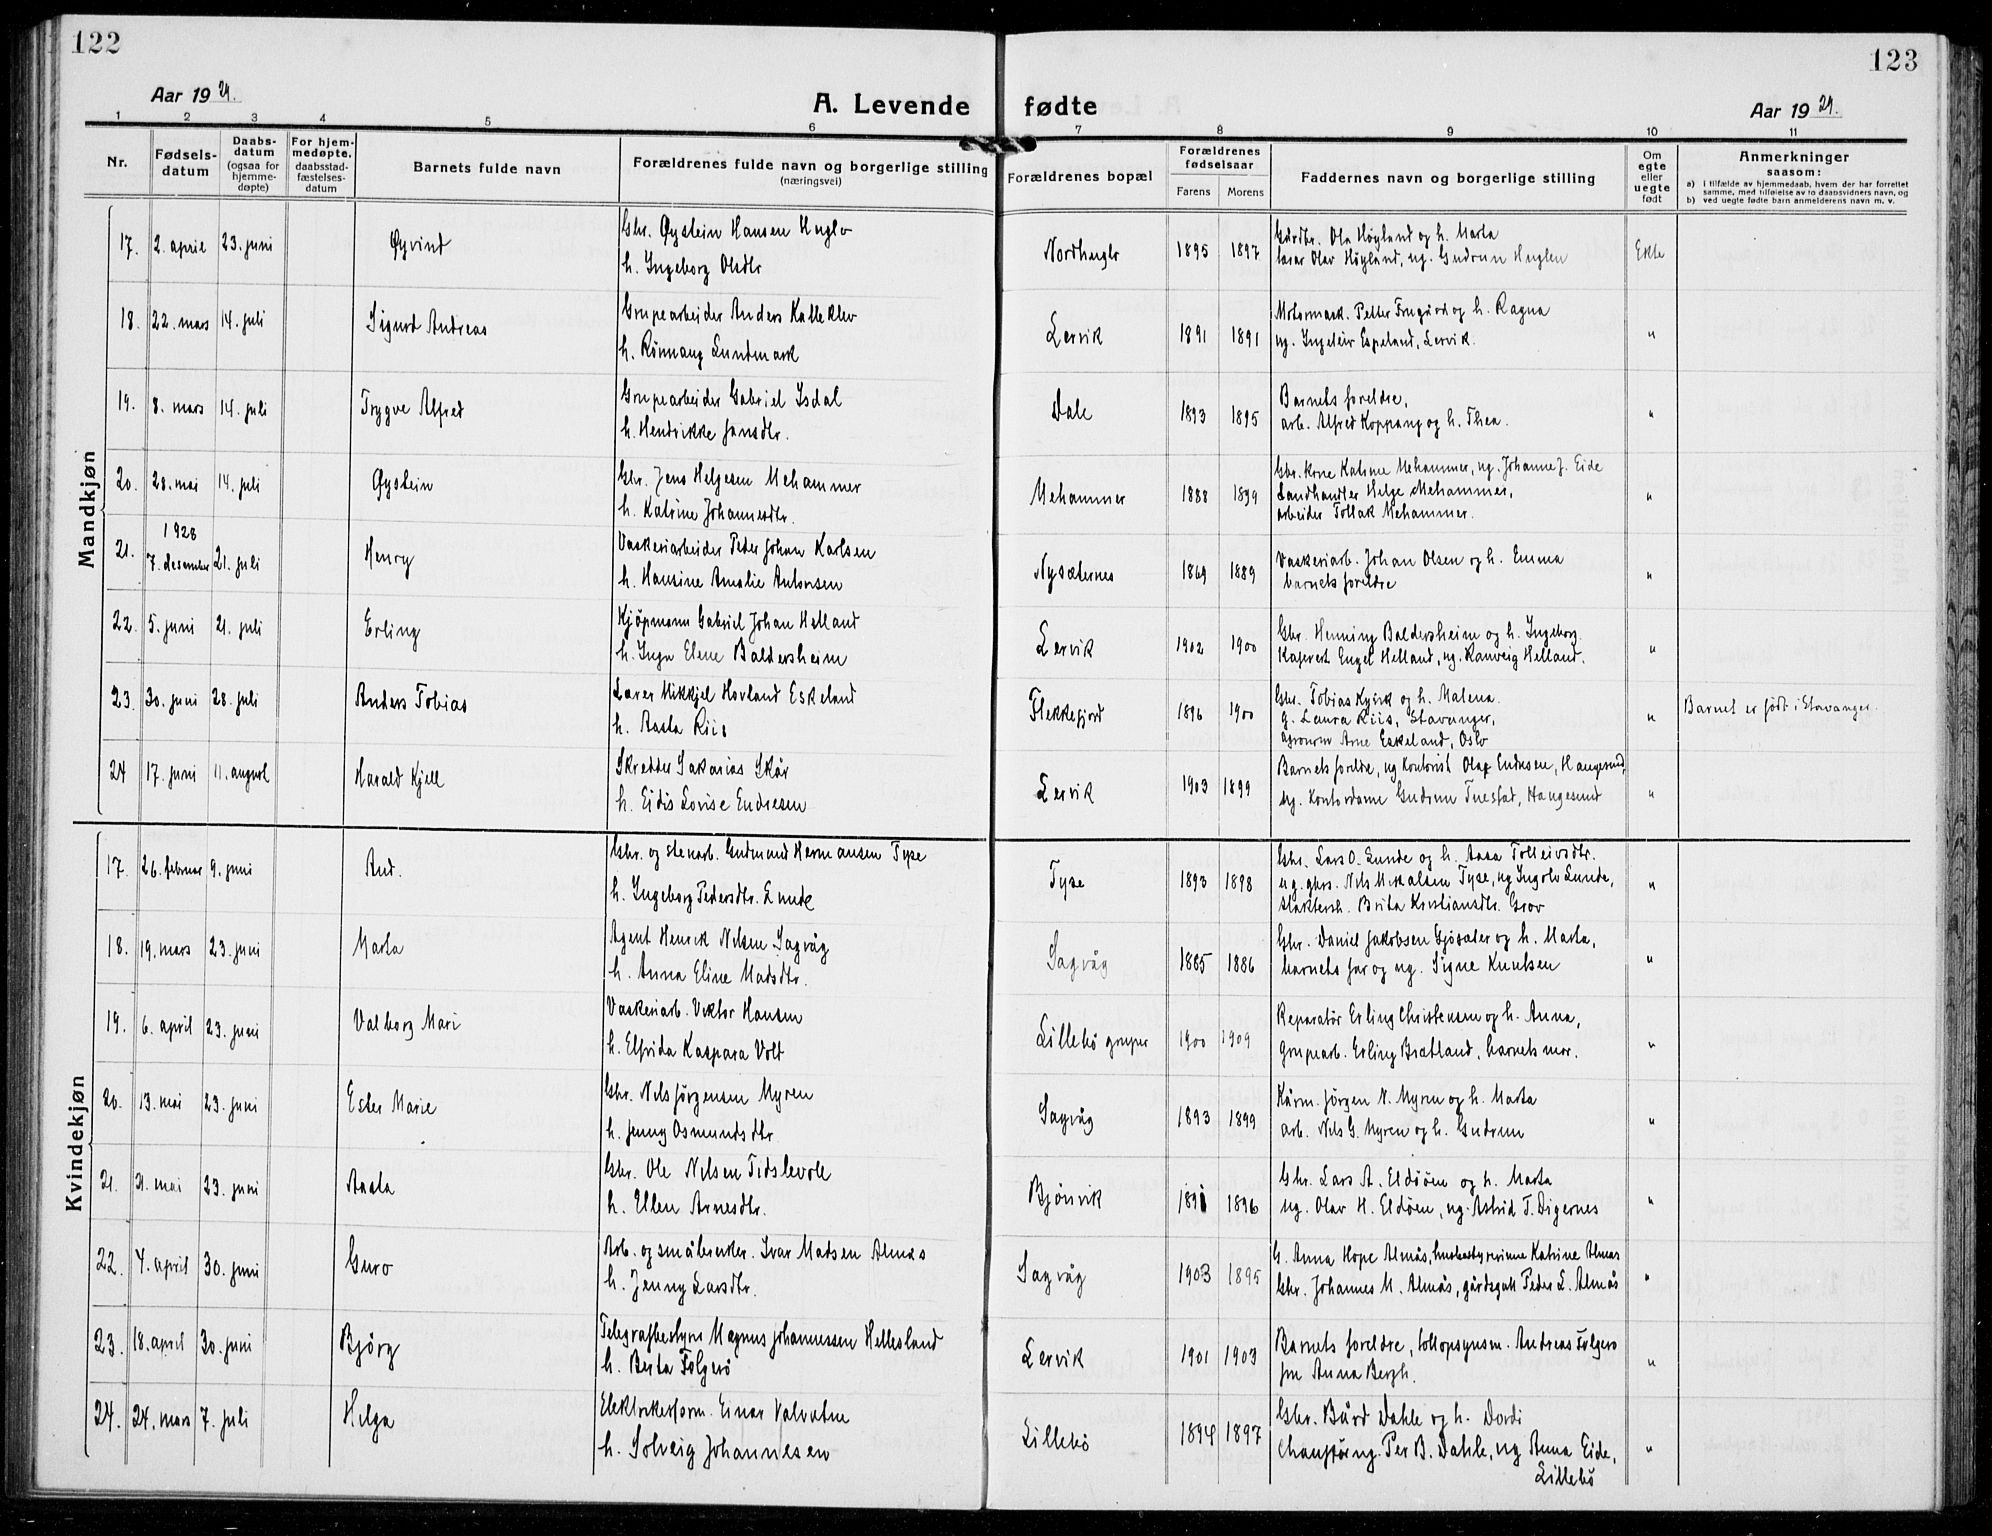 122
123
Aar 1929.
A. Levende fødte
Aar 1929.
1 2 3 4 5 6 7 8 9 10 11
Nr.
Fødsels-
datum
Daabs-
datum
(ogsaa for
hjemme-
døpte)
For hjem-
medøpte.
daabsstad-
fæstelses-
datum
Barnets fulde navn
Forældrenes fulde navn og borgerlige stilling
(næringsvei)
Forældrenes bopæl
Forældrenes
fødselsaar
Farens Morens
Faddernes navn og borgerlige stilling
Om
egte
eller
uegte
født
Anmerkninger
saasom:
a) i tilfælde av hjemmedaab, hvem der har forrettet
samme, med tilføielse av to daabsvidners navn, og
b) ved uegte fødte barn anmelderens navn m. v.
Mandkjøn
17. 2. april 23. juni Øyvind
Gbr. Øystein Hansen Huglo
h. Ingeborg Olsdtr
Nordhuglo 1895 1897
Gårdbr. Ola Høyland og h. Marta
lærar Olav Høyland, ug. Gudrun Huglen
Ekte
18. 22. mars 14. juli Sigurd Andreas
Grupearbeider Anders Kalleklev
h. Rønnaug Lundmark
Lervik 1891 1891
Motormask. Petter Frugård og h. Ragna
ug. Ingeleiv Espeland, Lervik.
"
19. 8. mars 14. juli Trygve Alfred
Grupearbeider Gabriel Isdal
h. Hendrikke Jansdtr.
Dale 1893 1895
Barnets foreldre,
arb. Alfred Koppang og h. Thea.
"
20. 28. mai 14. juli Øystein
Gbr. Jens Helgesen Mehammer
h. Katrine Johannesdtr.
Mehammer 1888 1899
Gbr.kone Katrine Mehammer, ug. Johanne J. Eide
Landhandler Helge Mehammer,
arbeider Tollak Mehammer.
"
21. 1928
7. desember 21. juli Henry
Vaskeriarbeider Peder Johan Karlsen
h. Hansine Amalie Antonsen
Nysæternes 1869 1889
Vaskeriarb. Johan Olsen og h. Emma
barnets foreldre
"
22. 5. juni 21. juli Erling
Kjøpmann Gabriel Johan Helland
h. Inga Elene Baldersheim
Lervik 1902 1900
Gbr. Henning Baldersheim og h. Ingeborg.
Engel Helland, ug. Ranveig Helland.
"
23. 30. juni 28. juli Anders Tobias
Lærer Mikkjel Hovland Eskeland
h. Aasta Riis
Flekkefjord 1896 1900
Gbr. Tobias Kyvik og h. Malena.
g. Laura Riis, Stavanger,
agronom Arne Eskeland, Oslo
"
Barnet er født i Stavanger.
24 17. juni 11. august Harald Kjell
Skredder Sakarias Skår
h. Eidis Lovise Endresen
Lervik 1903 1899
Barnets foreldre, ug Kontorist Olaf Endresen, Haugesund,
ug. Kontordame Gudrun Tuestad, Haugesund
"
Kvindekjøn
17. 26. februar 9. juni Aud.
Gbr. og stenarb. Gudmund Hermansen Tyse
h. Ingeborg Pedersdtr. Lunde
Tyse 1893 1898
Gbr. Lars O. Lunde og h. Aasa Tolleivsdtr.
ug. gbrs. Nils Mikalsen Tyse, ug Ingolv Lunde,
Brita Kristiansdtr. Grov
"
18. 19. mars 23. juni Marta
Agent Henrik Nilsen Sagvåg
h. Anna Eline Madsdtr.
Sagvåg 1885 1886
Gbr. Daniel Jakobsen Gjøsæter og h. Marta,
barnets far og ug. Signe Knutsen
"
19. 6. april 23. juni Valborg Mari
Vaskeriarb. Viktor Hansen
h. Elfrida Kaspara Volt
Lillebø gruper 1900 1909
Reparatør Erling Christensen og h. Anna,
Grupearb. Erling Brætland, barnets mor.
"
20. 13. mai 23. juni Ester Marie
Gbr. Nils Jørgensen Myren
h. Jenny Osmundsdtr
Sagvåg 1893 1899
Kårm. Jørgen N. Myren og h. Marta
arb. Nils G. Myren og h. Gudrun
"
21. 21. mai 23. juni Aasta
Gbr. Ole Nilsen Tislevoll
h. Ellen Arnesdtr.
Bjønvik 1891 1896
Gbr. Lars A. Eldøen og h. Marta
ug. Olav H. Eldøen, ug. Astrid T. Digernes
"
22. 4. april 30. juni Guro
Arb. og småbruker. Ivar Madsen Almås
h. Jenny Larsdtr.
Sagvåg 1903 1895
G. Anna Hope Almås, husbestyrerinne Katrine Almås
Gbr. Johannes M. Almås, gårdsgutt Peder L. Almås
"
23. 18. april 30. juni Bjørg
Telegrafbestyrer Magnus Johannessen Hellesland
h. Berta Folgerø
Lervik 1901 1903
Barnets foreldre, tollopsynsm. Andreas Folgerø
frø Anna Bergh.
"
24. 24. mars 7. juli Helga
Elektrikerform. Einar Valvatne
h. Solveig Johannesen
Lillebø 1894 1897
Gbr. Bård Dahle og h. Dordi
Chauffør ug. Per B. Dahle, ug Anna Eide,
Lillebø
"